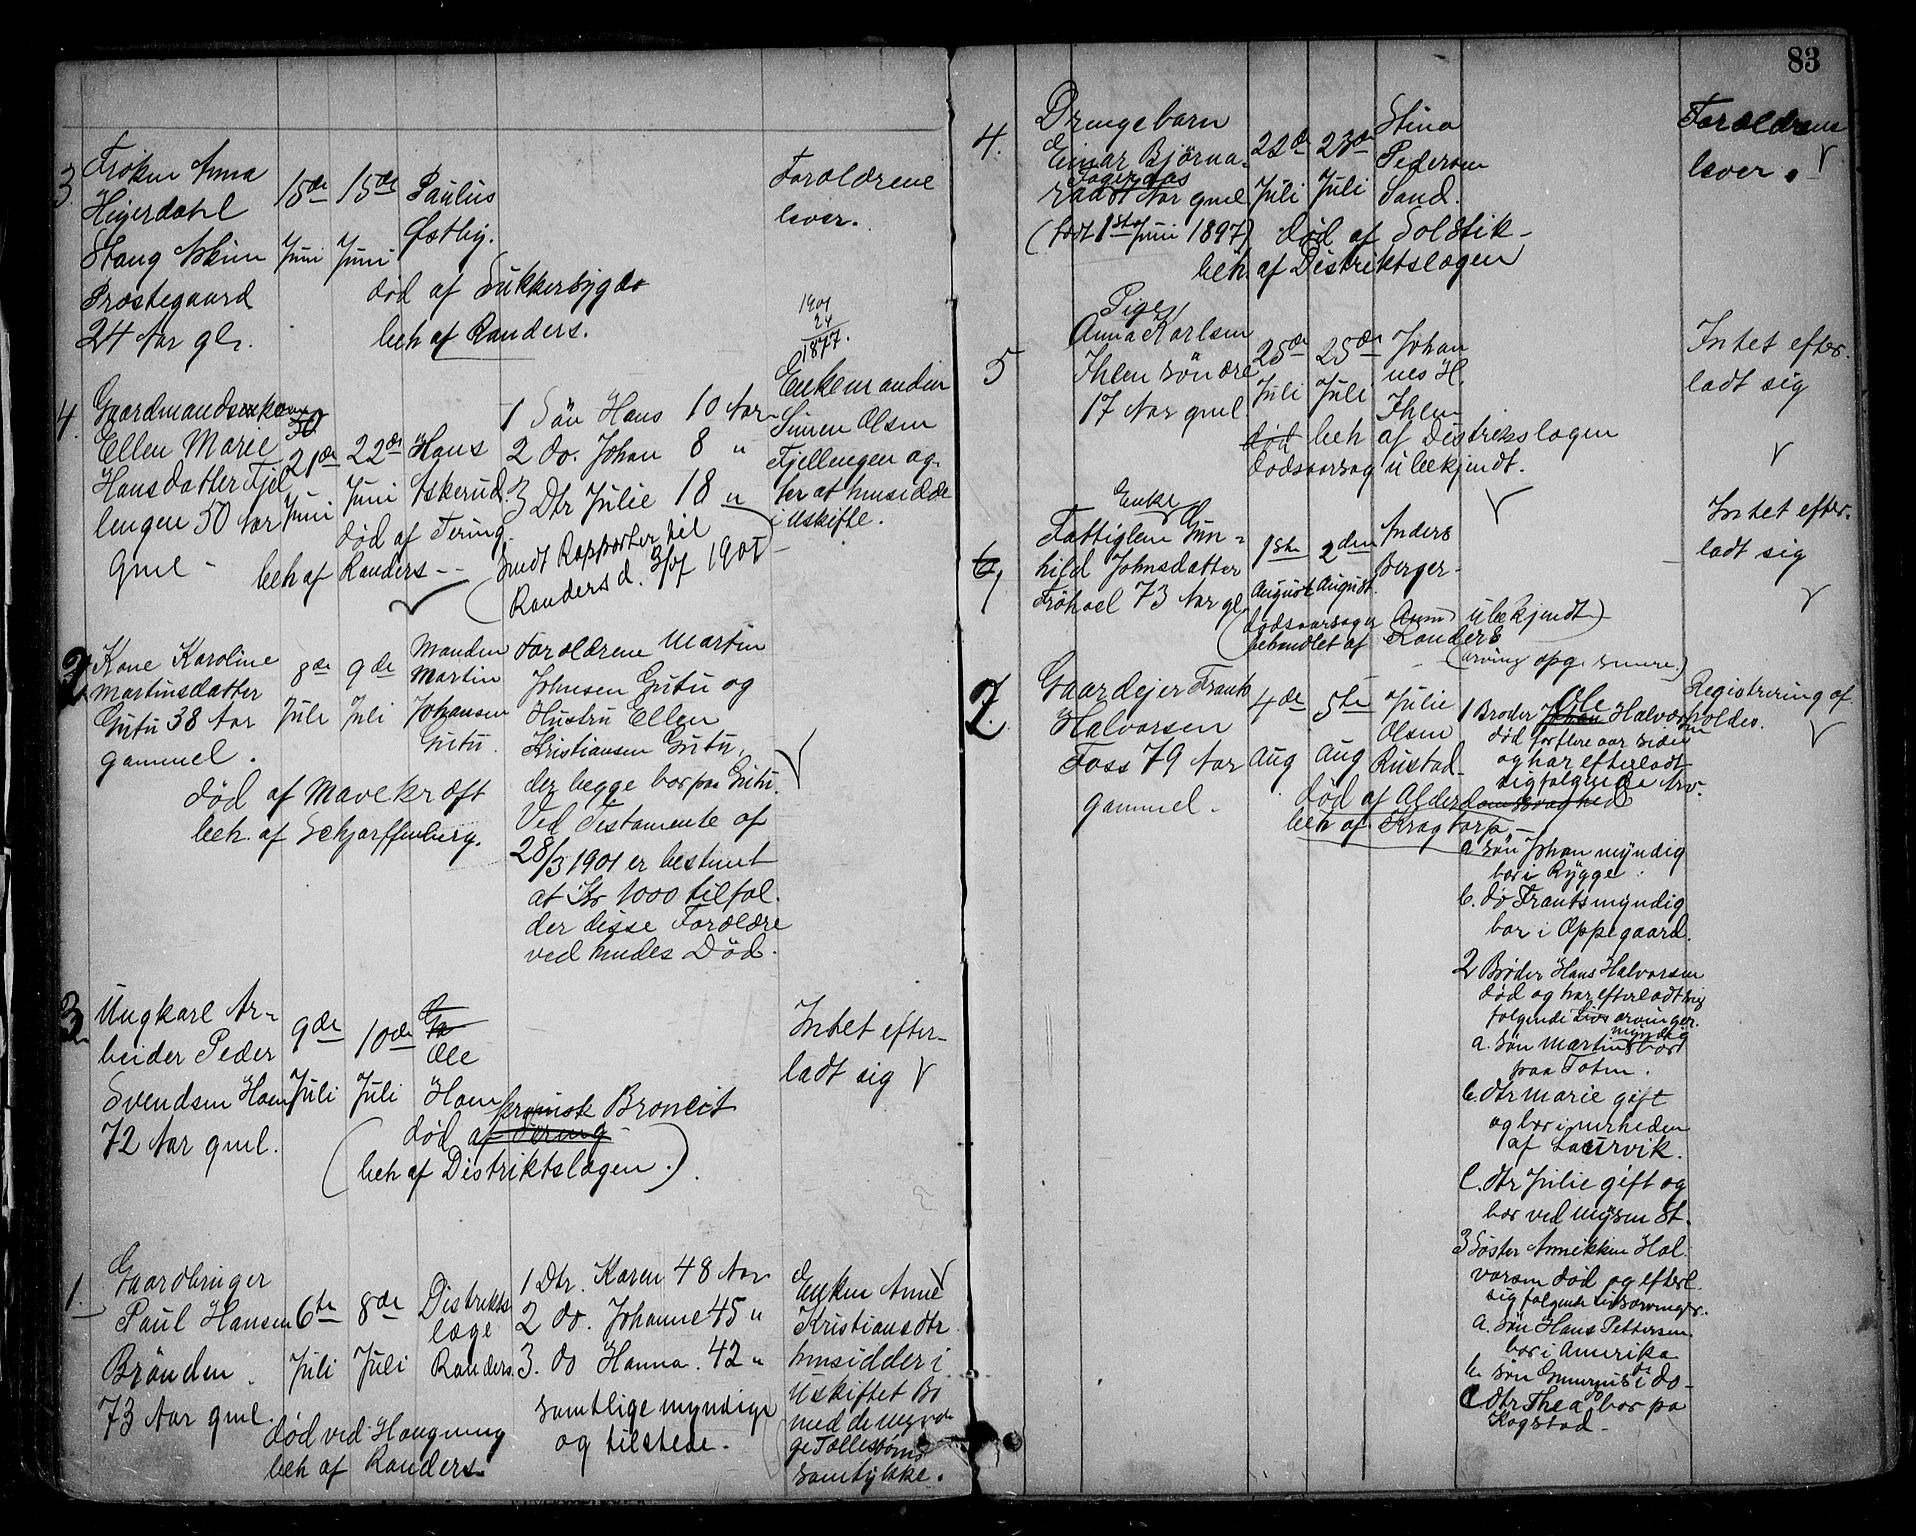 83
3.
Frøken Anna
Hejerdahl
Stang Askim
Præstegaard
24 Aar gl.
15de
Juni
15de
Juni
Paulus
Østby.
død af Sukkersyge
beh af Randers.
Forældrene
lever.
1901
24
1877.
4.
Gaardmandskone
Ellen Marie
Hansdatter Fjel
lengen 50 Aar
gml -
30
21de
Juni
22de
Juni
Hans
Askerud.
død af Tering.
beh af Randers - -
1 Sön Hans 10 Aar
2 do. Johan 8 "
3 Dtr Julie 18 "
(Sendt Rapporter til
Randers d. 3/7 1901)
Enkemanden
Simen Olsen
Fjellengen ag-
ter at hensidde
i Uskifte.
2
Kone Karoline
Martinsdatter
Gutu 38 Aar
gammel.
8de
Juli
9de
Juli
Manden
Martin
Johansen
Gutu.
død af Mavekræft
beh. af Schjarffenberg.
Forældrene Martin
Johnsen Gutu og
Hustru Ellen
Kristiansen Gutu,
der begge bor paa Gutu.
Ved Testamente af
28/3 1901 er bestemt
at Kr 1000 tilfal-
der disse Forældre
ved hendes Død.
3
Ungkarl Ar-
beider Peder
Svendsen Ham
72 Aar gml.
9de
Juli
10de
Juli
Ole
Ham
kronisk Broncit
død af Tering
(beh af Distriktslægen.)
Intet efter-
ladt sig
1.
Gaardbruger
Paul Hansen
Brånden.
73 Aar gml.
6te
Juli
8de
Juli
Distrikts
læge
Randers.
død ved Hængning
beh af Randers.
1 Dtr. Karen 48 Aar
2 do. Johanne 45 "
3. do Hanna. 42 "
samtlige myndige
og tilstede.
Enken Anne
Kristiansdtr
hensidder i
Uskiftet Bo
med de myndi
ge Fællesbørns
samtykke.
4.
Drengebarn
Einar Bjørna
Fagernæs
4 Aar gml
(født 1ste Juni 1897)
22de
Juli
23de
Juli
Stina
Pedersen
Sand.
død af Solstik -
beh. af Distriktslægen
Forældrene
lever.
5
Pige
Anna Karlsen
Ihlen söndre
17 Aar gml
25de
Juli
25de
Juli
Johan
nes H.
Ihlen
død beh af Distriktslægen
Dødsaarsag ubekjendt.
Intet efter-
ladt sig
1
Enke
Fattiglem Gun-
hild Johnsdatter
Frøhael 73 Aar gl
1ste
August
2den
August
Anders
Berger-
(Dødsaarsagen ubekjendt)
behandlet af Randers
(arving opg. senere.)
Intet efter-
ladt sig
2.
Gaardejer Frants
Halvorsen
Foss 79 Aar
gammel.
4de
Aug
5te
Aug
Julie
Olsen
Rustad
død af Alderdomssvaghed
beh af Kragtorp -
1 Broder Ole Halvorsen
død for flere aar siden
og har efterladt
sig følgende Arv.
a søn Johan myndig
bor i Rygge.
b. do Frants myndig
bor i Oppegaard.
2 Broder Hans Halvorsen
død og har efterladt sig
følgende Livsarvinger.
a. søn Martin myndig bor
paa Toten.
b. dtr Marie gift
og bor i nærheden
af Laurvik.
C. dtr Julie gift og
bor ved Mysen St.
3 Søster Annikken Hal-
vorsen død og efterl.
sig følgende Livsarvinger.
a. søn Hans Pettersen
bor i Amerika
b. søn Gunerius do i do -
C dtr Thea do bor pa
Kogstad -
Registrering af-
holdes.